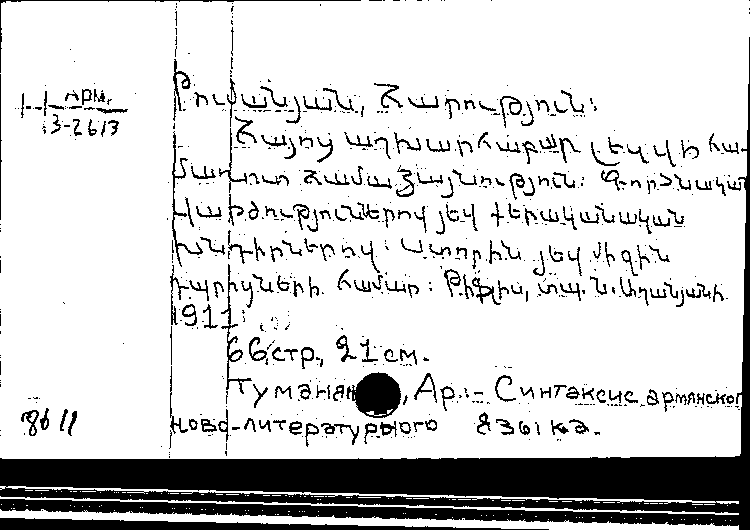 Арм.
3-2613
Թումանյան, Հարություն:
Հայոց աշխարհաբար լեզվի հա-
մառոտ համաձայնություն: Գործնական
վարժություններով յեվ քերականական
խնդիրներով: Ստորին յեվ միջին
դպրոցների համար: Թիֆլիս, տպ. Ն. Աղանյանի
1911:
66 стр., 21 см.
Туманян, Ар.- Синтаксис армянског
ново-литературного языка.
8611